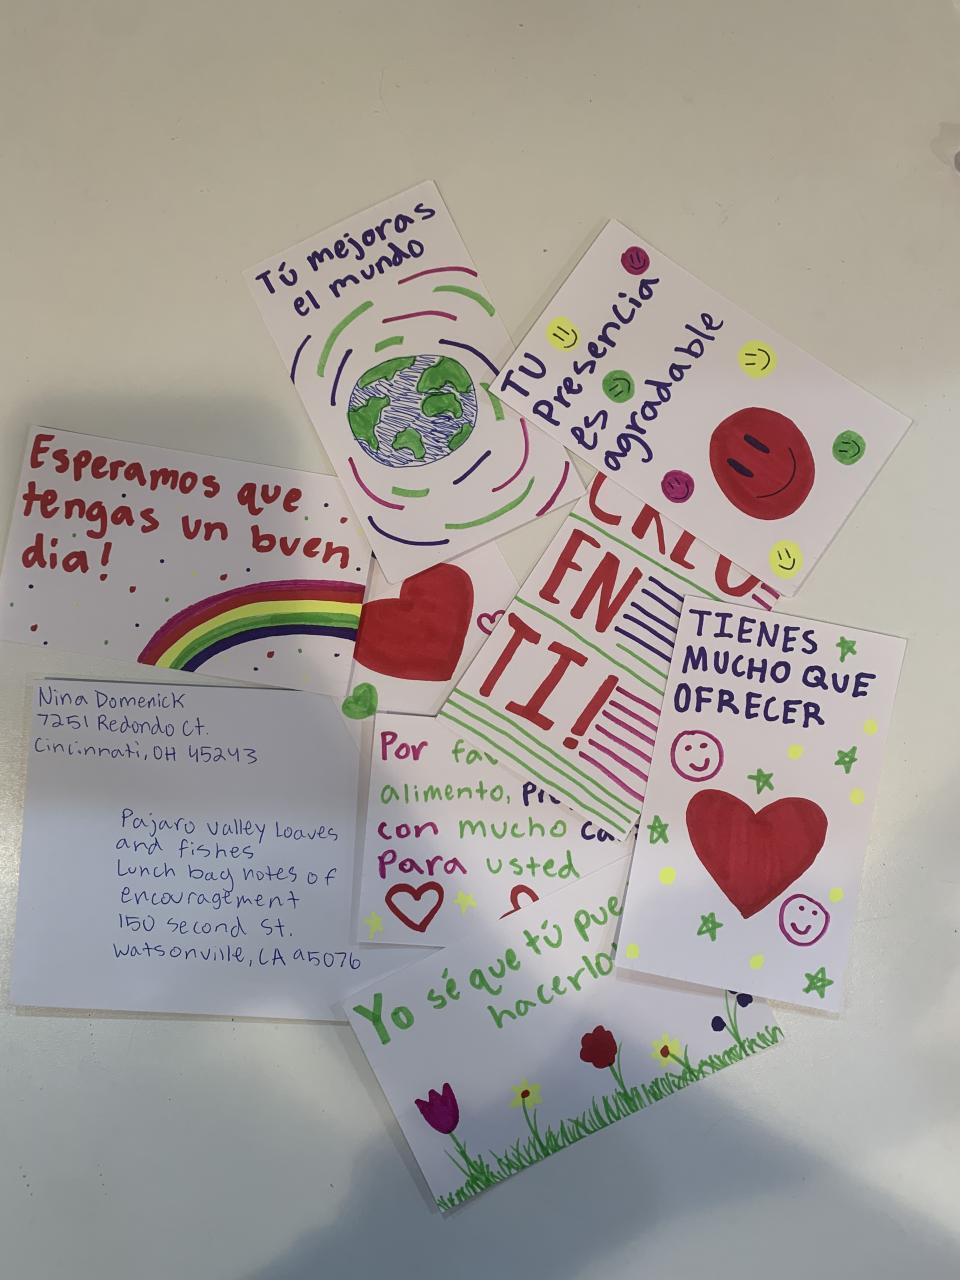 Tú mejoras
el mundo
TU
Presencia
es
agradable
Esperamos que
tengas un buen
dia!
CREO
EN
TI!
TIENES
MUCHO QUE
OFRECER
Nina Domenick
7251 Redondo Ct.
Cincinnati, OH 45243
Pajaro valley Loaves
and fishes
Lunch bag notes of
encouragement
150 second St.
Watsonville, CA 95076
Por
alimento,
con mucho
Para usted
Yo sé que tú
hacerlo